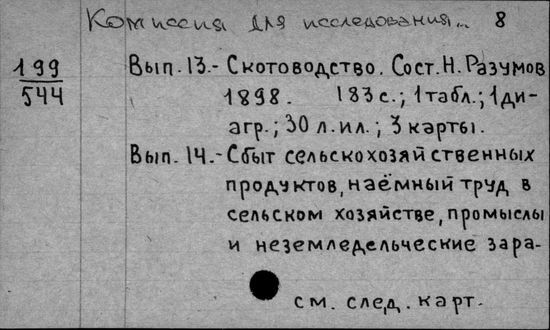 Комиссия для исследования... 8
199
544
Вып. 13.- Скотоводство. Сост. Н. Разумов
1898. 183 с.; 1 табл.; 1 ди-
агр.; 30 л. ил.; 3 карты.
Вып. 14.- Сбыт сельскохозяйственных
продуктов, наёмный труд в
сельском хозяйстве, промыслы
и неземледельческие зара-
см. след. карт.